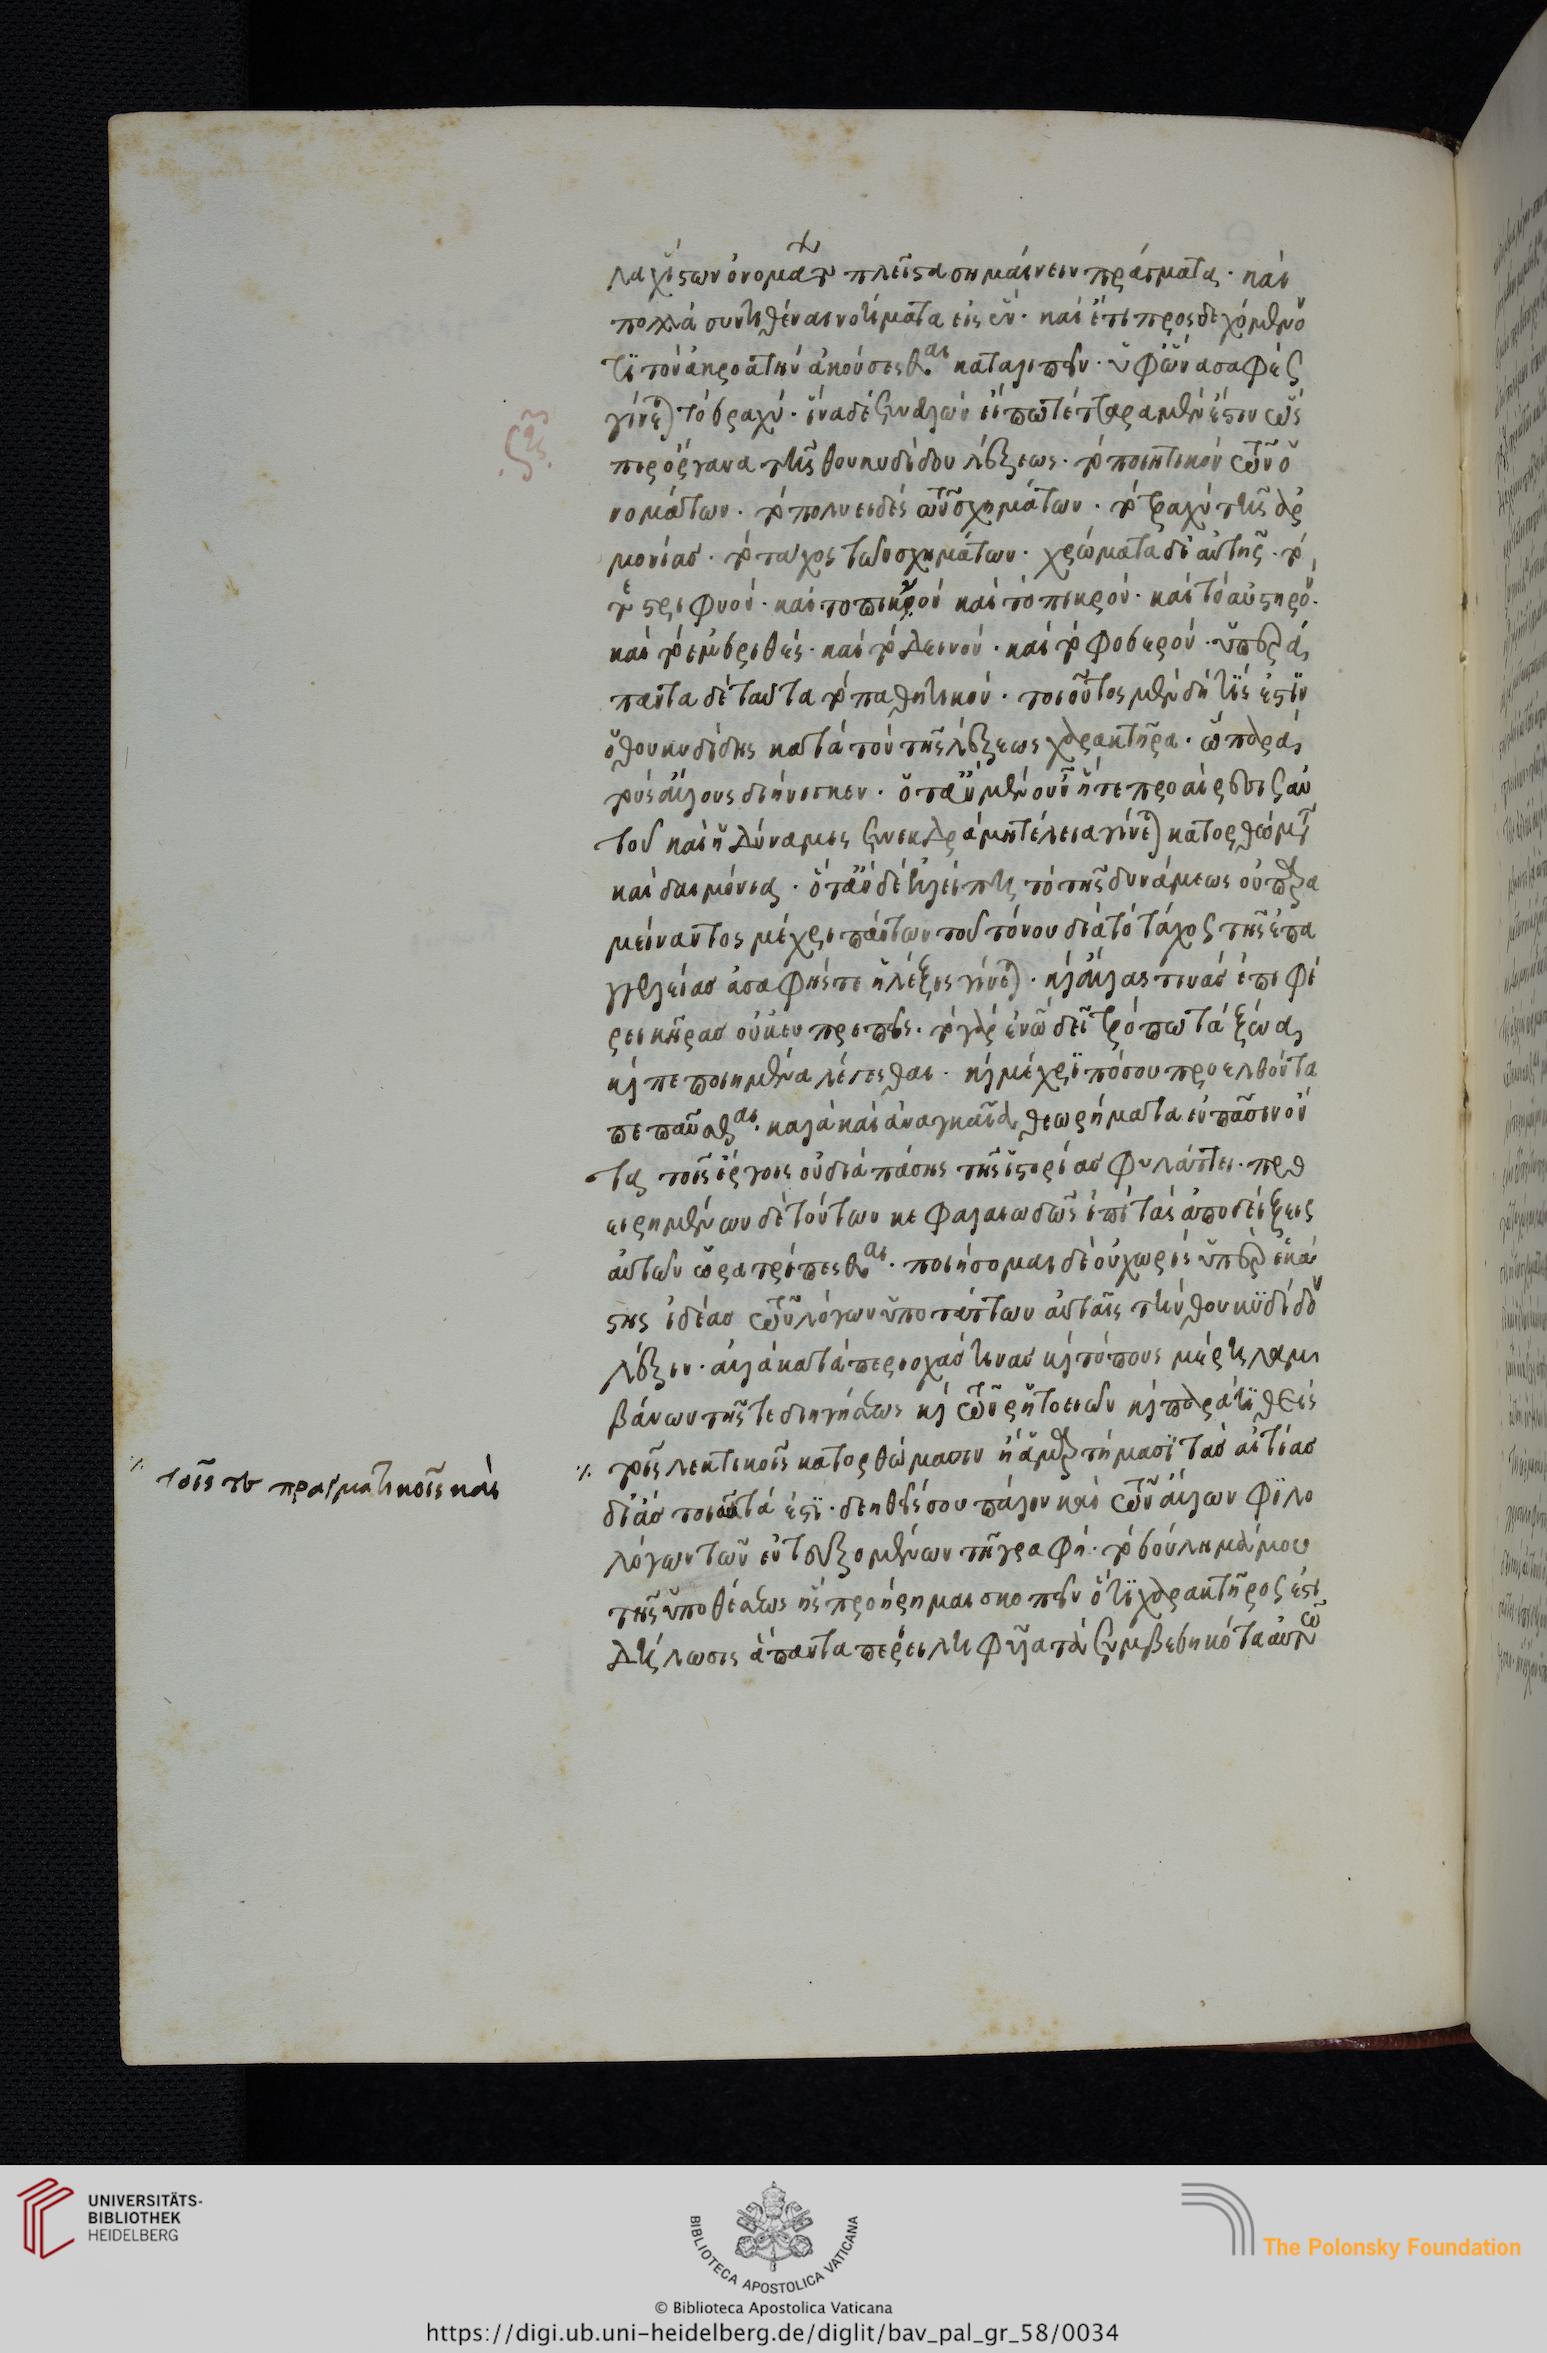 λαχίστων ὀνομάτων πλεῖστα σημαίνειν πράγματα· καὶ
πολλὰ συντιθέναι νοήματα εἰς ἕν· καὶ ἔτι προσδεχόμενόν
τι τὸν ἀκροατὴν ἀκούσεσθαι καταλιπεῖν· ὑφ' ὧν ἀσαφὲς
γίνεται τὸ βραχύ· ἵνα δὲ συνελὼν εἴπω τέτταρα μέν ἐστιν ὥσ
περ ὄργανα τῆς θουκυδίδου λέξεως· τὸ ποιητικὸν τῶν ὀ
νομάτων· τὸ πολυειδὲς τῶν σχημάτων· τὸ τραχὺ τῆς ἁρ
μονίας· τὸ τάχος τῶν σχημάτων· χρώματα δὲ αὐτῆς· τό
τε στριφνόν· καὶ τὸ πυκνὸν καὶ τὸ πικρόν· καὶ τὸ αὐστηρόν·
καὶ τὸ ἐμβριθές· καὶ τὸ δεινόν· καὶ τὸ φοβερόν· ὑπὲρ ἅ
παντα δὲ ταῦτα τὸ παθητικόν· τοιοῦτος μὲν δή τίς ἐστιν
ὁ θουκυδίδης κατὰ τὸν τῆς λέξεως χαρακτῆρα· ᾧ παρὰ
τοὺς ἄλλους διήνεγκεν· ὅταν μὲν οὖν ἥ τε προαίρεσις αὐ
τοῦ καὶ ἡ δύναμις συνεκδράμῃ τέλεια γίνεται κατορθώματα
καὶ δαιμόνια· ὅταν δὲ ἐλλείπῃ τὸ τῆς δυνάμεως οὐ παρα
μείναντος μέχρι πάντων τοῦ τόνου διὰ τὸ τάχος τῆς ἐπα
γγελίας ἀσαφής τε ἡ λέξις γίνεται· καὶ ἄλλας τινὰς ἐπιφέ
ρει κῆρας οὐκ εὐπρεπεῖς· τὸ γὰρ ἐν ᾧ δεῖ τρόπῳ τὰ ξένα
καὶ πεποιημένα λέγεσθαι· καὶ μέχρι πόσου προελθόντα
πεπαῦσθαι· καλὰ καὶ ἀναγκαῖα θεωρήματα ἐν πᾶσιν ὄν
τα τοῖς ἔργοις οὐ διὰ πάσης τῆς ἱστορίας φυλάττει· προ
ειρημένων δὲ τούτων κεφαλαιωδῶς ἐπὶ τὰς ἀποδείξεις
αὐτῶν ὥρα τρέπεσθαι· ποιήσομαι δὲ οὐ χωρὶς ὑπὲρ ἑκά
στης ἰδέας τῶν λόγων ὑποτάττων αὐταῖς τὴν θουκυδίδου
λέξιν· ἀλλὰ κατὰ περιοχάς τινας καὶ τόπους μέρη λαμ
βάνων τῆς τε διηγήσεως καὶ τῶν ῥητορειῶν καὶ παρατιθεὶς
τοῖς τε πραγματικοῖς καὶ
τοῖς λεκτικοῖς κατορθώμασιν ἢ ἁμαρτήμασι τὰς αἰτίας
δι' ἃς τοιαῦτά ἐστι· δεηθεὶς σου πάλιν καὶ τῶν ἄλλων φιλο
λόγων τῶν ἐντευξομένων τῇ γραφῇ· τὸ βούλημά μου
τῆς ὑποθέσεως ἧς προῄρημαι σκοπεῖν ὅτι χαρακτῆρός ἐστι
δήλωσις ἅπαντα περιειληφυῖα τὰ συμβεβηκότα αὐτῷ
UNIVERSITÄTS-
BIBLIOTHEK
HEIDELBERG
BIBLIOTECA APOSTOLICA VATICANA
The Polonsky Foundation
© Biblioteca Apostolica Vaticana
https://digi.ub.uni-heidelberg.de/diglit/bav_pal_gr_58/0034